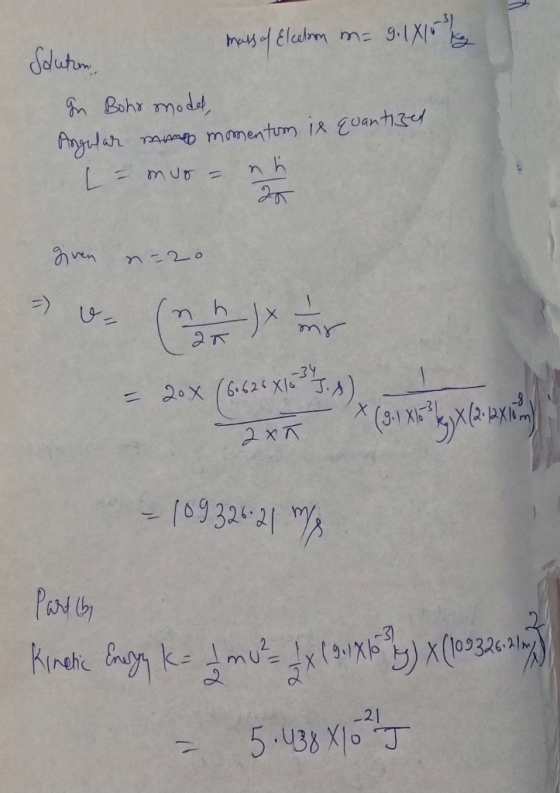 mass of Electron m = 9.1×10⁻³¹ kg
Solution:
In Bohr model,
Angular momentum is Quantized
L = mvr = nh/2π
given n = 20
⇒ v = (nh/2π) × 1/mr
= 20 × (6.626×10⁻³⁴ J.s)/(2×π) × 1/((9.1×10⁻³¹ kg)×(2.12×10⁻⁸ m))
= 109326.21 m/s
Part(b),
Kinetic Energy K = 1/2 mv² = 1/2 × (9.1×10⁻³¹ kg) × (109326.21 m/s)²
= 5.438×10⁻²¹ J